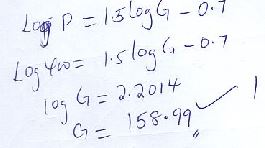 Log P = 1.5 log G - 0.7
Log 400 = 1.5 log G - 0.7
log G = 2.2014
G = 158.99 ✓ 1